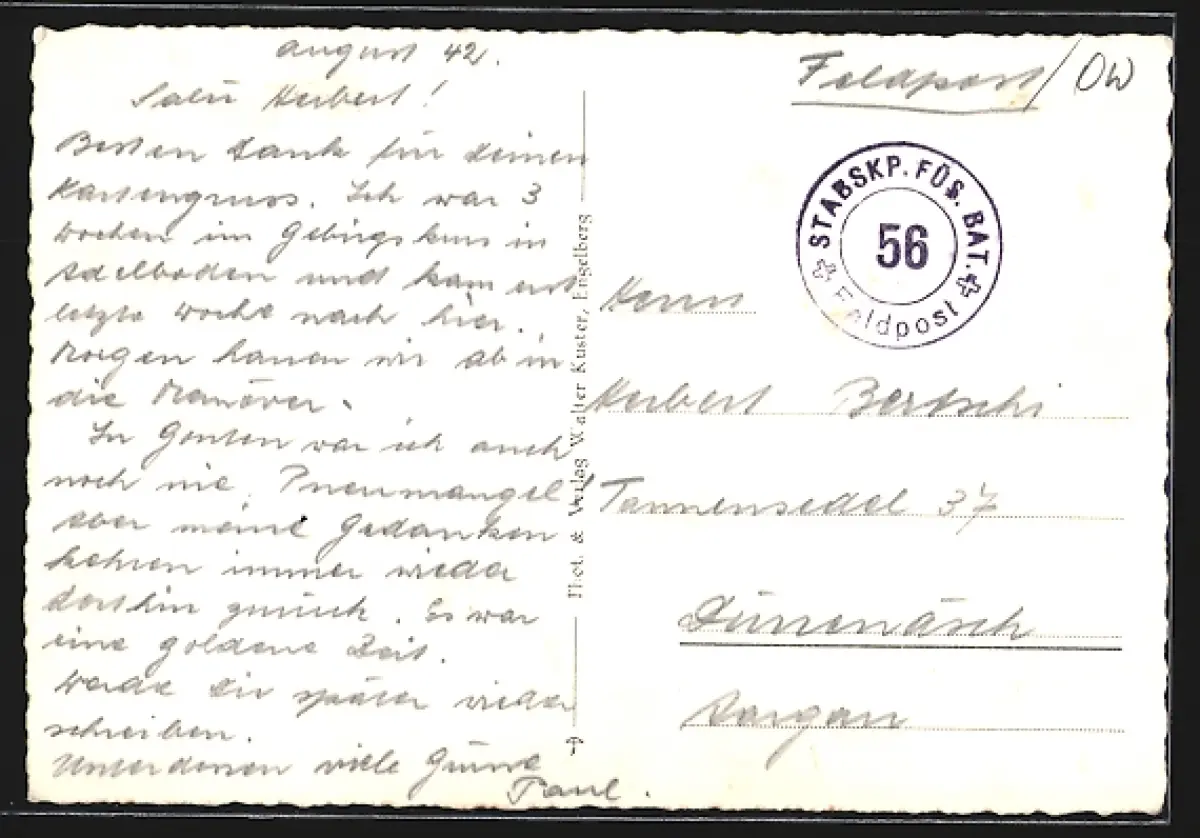 August 42.
Salü Herbert!
Besten Dank für deinen
Kartengruss. Ich war 3
Wochen im Gebirgskurs in
Adelboden und kam erst
letzte Woche nach hier.
Morgen hauen wir ab in
die Manöver.
In Gonten war ich auch
noch nie, Pneumangel!
aber meine Gedanken
kehren immer wieder
dorthin zurück. Es war
eine goldene Zeit.
Werde Dir später wieder
schreiben.
Unterdessen viele Grüsse
Paul.
Phot. & Verlag Walter Kuster, Engelberg
Feldpost/OW
STABSKP. FÜS. BAT.
56
Feldpost
Herrn
Herbert Bertschi
Tannensedel 37
Dürrenäsch
Aargau